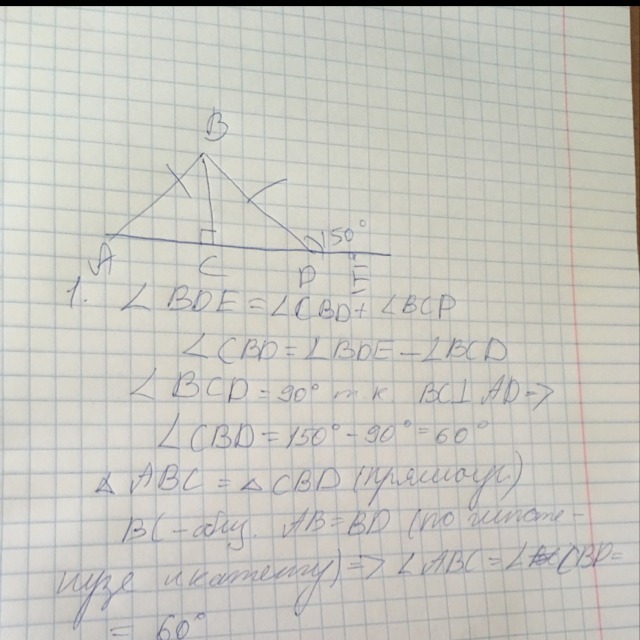 B
150°
A C D E
1. ∠BDE = ∠CBD + ∠BCD
∠CBD = ∠BDE − ∠BCD
∠BCD = 90° т к BC⊥AD =>
∠CBD = 150° − 90° = 60°
△ABC = △CBD (прямоуг.)
BC - общ. AB = BD (по гипоте-
нузе и катету) => ∠ABC = ∠CBD =
= 60°